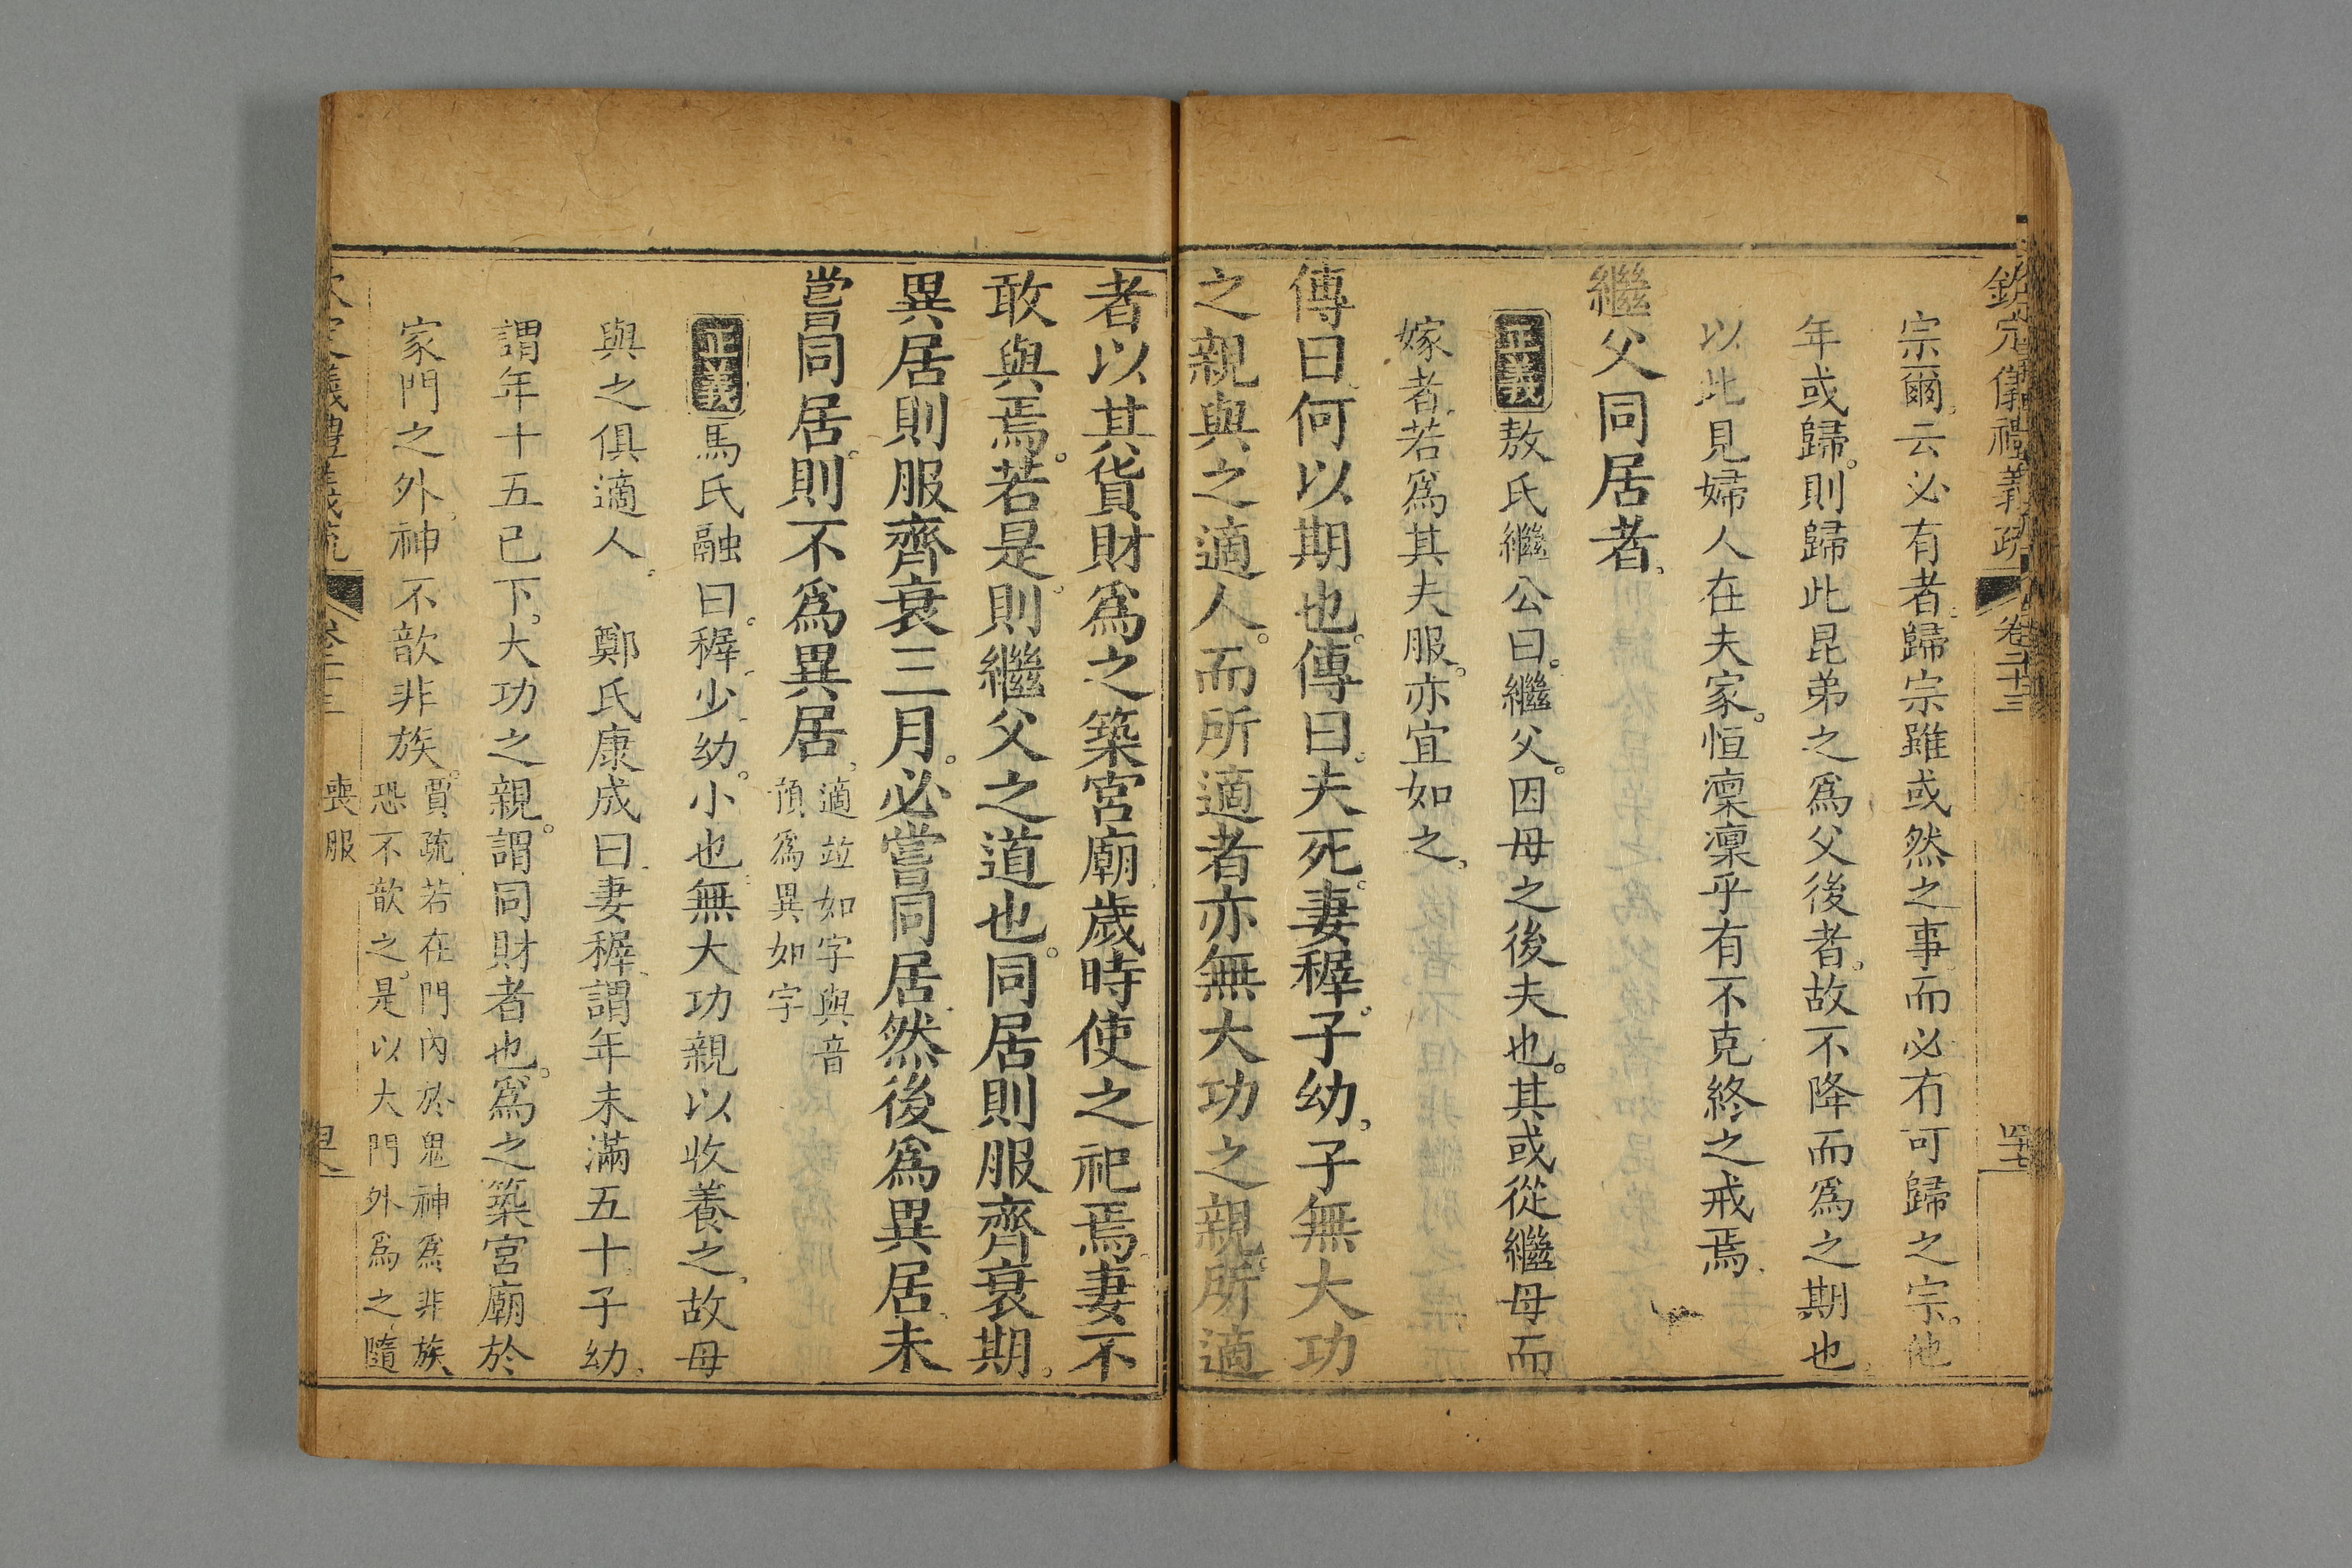 欽定儀禮義疏 卷二十三 四十七
宗爾云必有者歸宗雖或然之事而必有可歸之宗他
年或歸則歸此昆弟之爲父後者故不降而爲之期也
以此見婦人在夫家恒凜凜乎有不克終之戒焉
繼父同居者
正義敖氏繼公曰繼父因母之後夫也其或從繼母而
嫁者若爲其夫服亦宜如之
傳曰何以期也傳曰夫死妻穉子幼子無大功
之親與之適人而所適者亦無大功之親所適
者以其貨財爲之築宮廟歲時使之祀焉妻不
敢與焉若是則繼父之道也同居則服齊衰期
異居則服齊衰三月必嘗同居然後爲異居未
嘗同居則不爲異居
適竝如字與音
預爲異如字
正義馬氏融曰穉少幼小也無大功親以收養之故母
與之俱適人 鄭氏康成曰妻穉謂年未滿五十子幼
謂年十五已下大功之親謂同財者也爲之築宮廟於
家門之外神不歆非族
賈疏若在門內於鬼神爲非族
恐不歆之是以大門外爲之隨
儀禮義疏 卷二十三 喪服